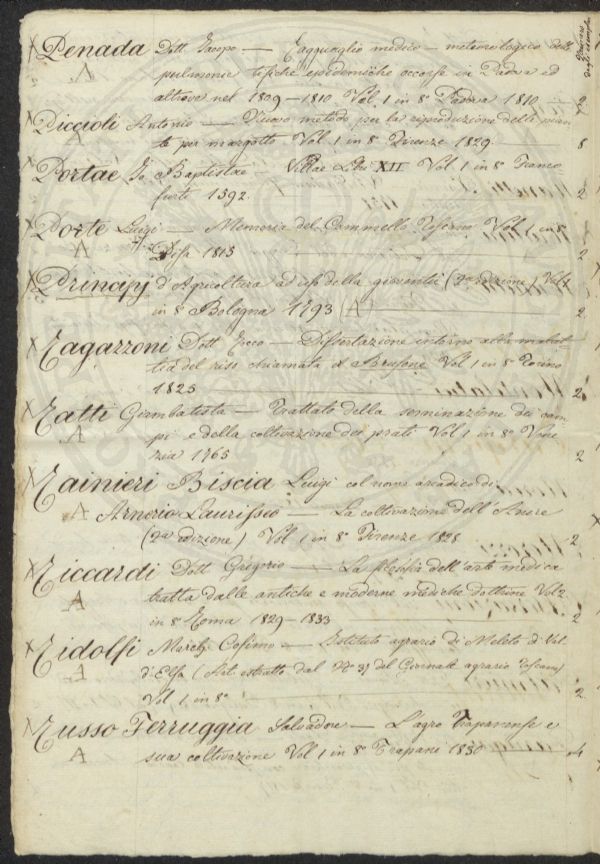 Numero degli esemplari
X Penada Dott. Jacopo — Ragguaglio medico — meteorologico delle
A pulmonie tisiche epidemiche occorse in Padova ed
altrove nel 1809 — 1810 Vol. 1 in 8° Padova 1810. 2
X Piccioli Antonio — Nuovo metodo per la riproduzione delle pian-
A te per margotto Vol. 1 in 8° Firenze 1829. 8
X Portae Jo Baptistae — Villae Libri XII Vol 1 in 8° Franco
furti 1592. 2
X Porte Luigi — Memoria del Cammello Vol 1 in 8°
A Pisa 1813 2
X Principj d'Agricoltura ad uso della gioventù (2a edizione) Vol. 1
in 8° Bologna 1793 (A) 2
X Ragazzoni Dott. Rocco — Dissertazione intorno alla malat-
tia del riso chiamata il Brusone Vol 1 in 8° Torino
1825 2
X Ratti Giambatista — Trattato della seminazione dei cam-
A pi e della coltivazione dei prati Vol 1 in 8° Vene
zia 1765 2
X Rainieri Biscia Luigi col nome arcadico di
A Arnerio Laurisseo — La coltivazione dell'Anice
(2a edizione) Vol 1 in 8° Firenze 1828 2
X Riccardi Dott Grigorio — La filosofia dell'arte medica
A tratta dalle antiche e moderne mediche dottrine Vol 2
in 8° Roma 1829 — 1833 2
X Ridolfi March. Cosimo — Istituto agrario di Meleto di Val
A d'Elsa (Art. estratto dal N° 39 del Giornale agrario Toscano)
Vol 1 in 8° 2
X Russo Ferruggia Salvadore — L'agro Trapanese e
A sua coltivazione Vol 1 in 8° Trapani 1830 4